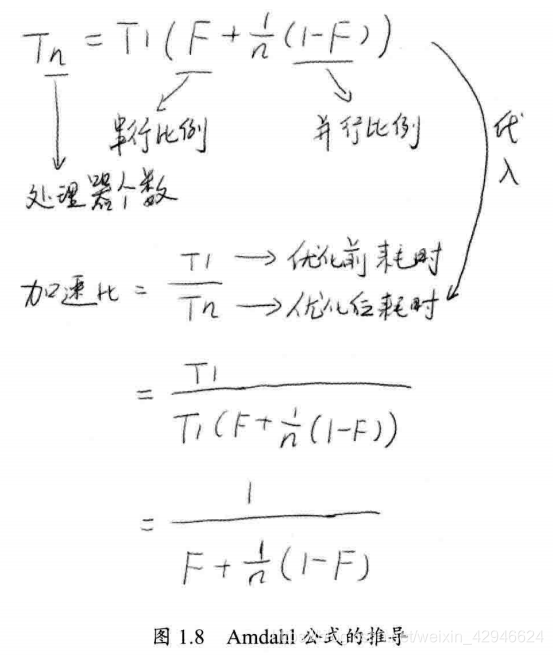 Tn = T1 ( F + 1/n (1-F) )
串行比例 并行比例 代入
处理器个数
加速比 = T1/Tn → 优化前耗时 → 优化后耗时
= T1 / T1 ( F + 1/n (1-F) )
= 1 / F + 1/n (1-F)
图 1.8 Amdahl 公式的推导
weixin_42946624